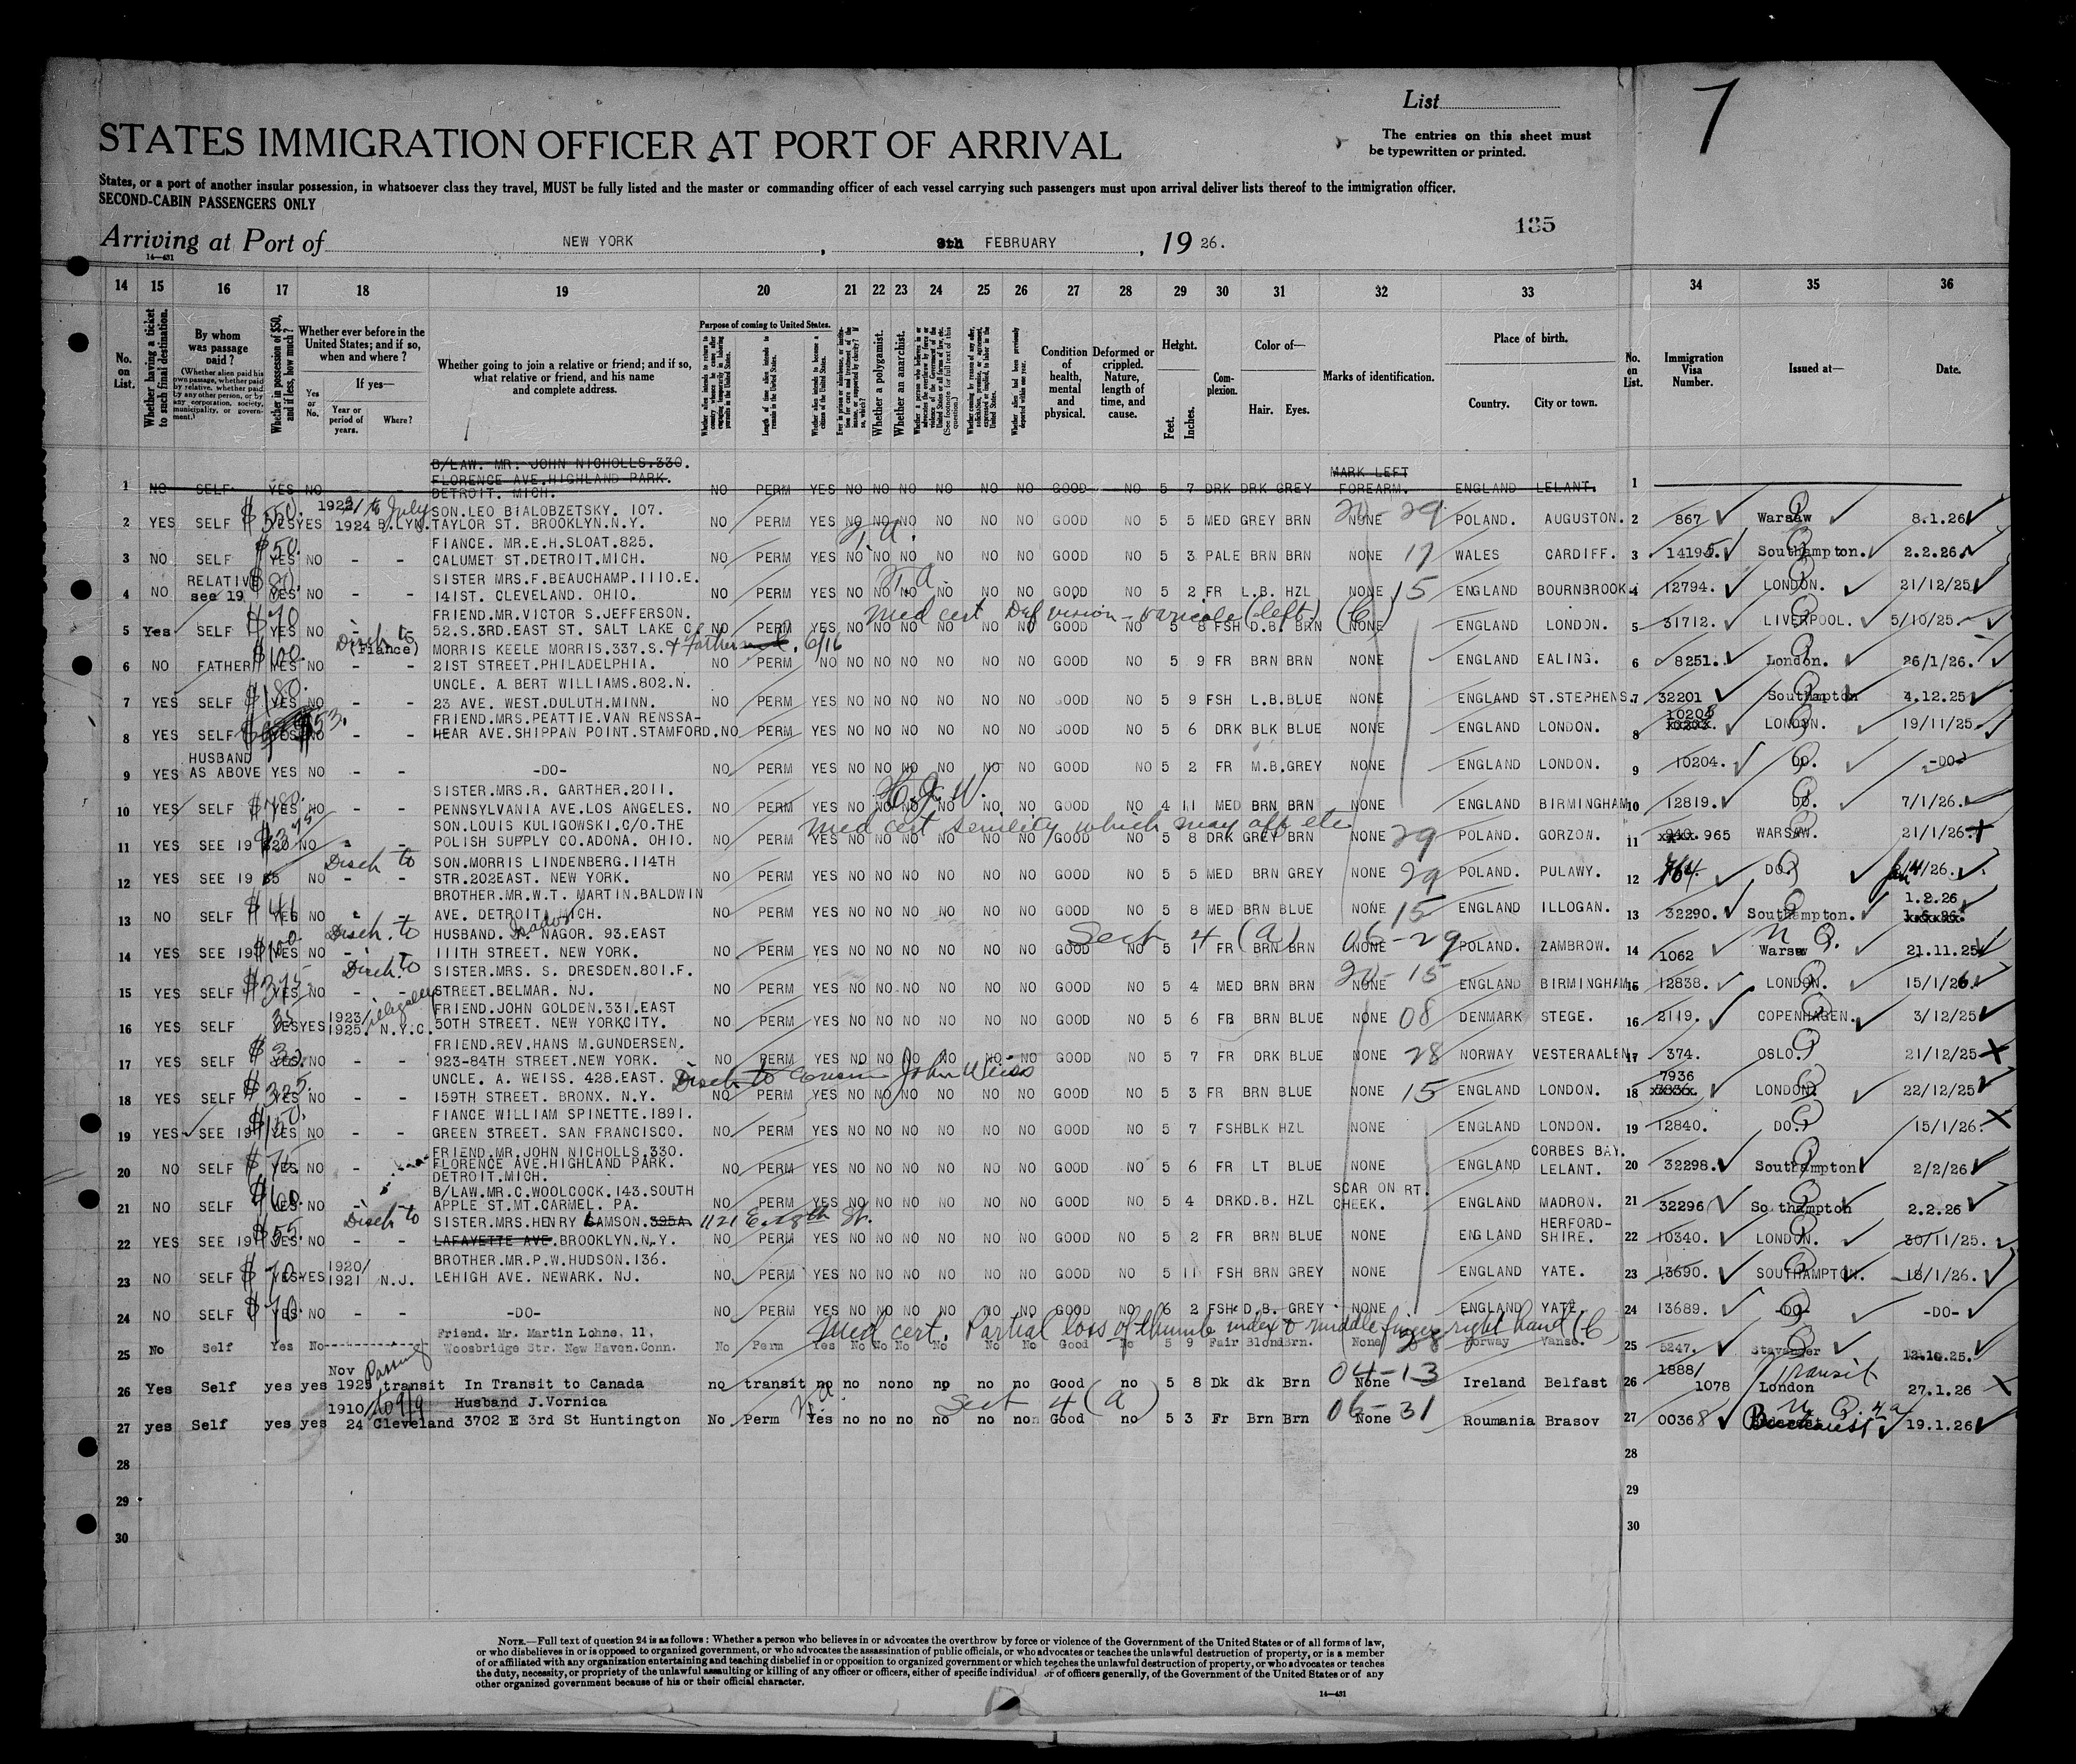 List
7
STATES IMMIGRATION OFFICER AT PORT OF ARRIVAL
The entries on this sheet must
be typewritten or printed.
States, or a port of another insular possession, in whatsoever class they travel, MUST be fully listed and the master or commanding officer of each vessel carrying such passengers must upon arrival deliver lists thereof to the immigration officer.
SECOND-CABIN PASSENGERS ONLY
135
Arriving at Port of NEW YORK, 9th FEBRUARY, 19 26.
14—431
14 15 16 17 18 19 20 21 22 23 24 25 26 27 28 29 30 31 32 33 34 35 36
No. on List.
Whether having a ticket to such final destination.
By whom was passage paid?
(Whether alien paid his own passage, whether paid by relative, whether paid by any other person, or by any corporation, society, municipality, or government.)
Whether in possession of $50, and if less, how much?
Whether ever before in the United States; and if so, when and where?
Yes or No.
If yes—
Year or period of years.
Where?
Whether going to join a relative or friend; and if so, what relative or friend, and his name and complete address.
Purpose of coming to United States.
Length of time alien intends to remain in the United States.
Whether alien intends to become a citizen of the United States.
Whether a polygamist.
Whether an anarchist.
Condition of health, mental and physical.
Deformed or crippled. Nature, length of time, and cause.
Height.
Feet.
Inches.
Complexion.
Color of—
Hair. Eyes.
Marks of identification.
Place of birth.
Country. City or town.
No. on List.
Immigration Visa Number.
Issued at—
Date.
B/LAW. MR. JOHN NICHOLLS.330.
FLORENCE AVE.HIGHLAND PARK. MARK LEFT
1 NO SELF YES NO - - DETROIT. MICH. NO PERM YES NO NO NO NO NO NO GOOD NO 5 7 DRK DRK GREY FOREARM. ENGLAND LELANT. 1
$50. 1922/ July SON.LEO BIALOBZETSKY. 107. 20-29
2 YES SELF YES YES 1924 B.LYN. TAYLOR ST. BROOKLYN.N.Y. NO PERM YES NO NO NO NO NO NO GOOD NO 5 5 MED GREY BRN NONE POLAND. AUGUSTON. 2 867 Warsaw 8.1.26
$50. FIANCE. MR.E.H.SLOAT.825.
3 NO SELF YES NO - - CALUMET ST.DETROIT.MICH. NO PERM YES NO NO NO NO NO NO GOOD NO 5 3 PALE BRN BRN NONE 17 WALES CARDIFF. 3 14195. Southampton. 2.2.26.
RELATIVE $80. SISTER MRS.F.BEAUCHAMP.1110.E.
4 NO see 19 YES NO - - 141ST. CLEVELAND. OHIO. NO PERM YES NO NO NO NO NO NO GOOD NO 5 2 FR L.B. HZL NONE 15 ENGLAND BOURNBROOK. 4 12794. LONDON. 21/12/25
$70 FRIEND.MR.VICTOR S.JEFFERSON. med cert Def vision - varicole (left) (C)
5 Yes SELF YES NO - - 52.S.3RD.EAST ST. SALT LAKE C. NO PERM YES NO NO NO NO NO NO GOOD NO 5 8 FSH D.B. BRN NONE ENGLAND LONDON. 5 31712. LIVERPOOL. 5/10/25
$100. Disch to (Fiance) MORRIS KEELE MORRIS.337.S. + Father 6/16
6 NO FATHER YES NO - - 21ST STREET.PHILADELPHIA. NO PERM NO NO NO NO NO NO NO GOOD NO 5 9 FR BRN BRN NONE ENGLAND EALING. 6 8251. London. 26/1/26.
$180. UNCLE. A BERT WILLIAMS.802.N.
7 YES SELF YES NO - - 23 AVE. WEST.DULUTH.MINN. NO PERM YES NO NO NO NO NO NO GOOD NO 5 9 FSH L.B. BLUE NONE ENGLAND ST.STEPHENS. 7 32201 Southampton 4.12.25
53. FRIEND.MRS.PEATTIE.VAN RENSSA- 10203
8 YES SELF YES NO - - HEAR AVE.SHIPPAN POINT.STAMFORD. NO PERM YES NO NO NO NO NO NO GOOD NO 5 6 DRK BLK BLUE NONE ENGLAND LONDON. 8 LONDON. 19/11/25.
HUSBAND
9 YES AS ABOVE YES NO - - -DO- NO PERM YES NO NO NO NO NO NO GOOD NO 5 2 FR M.B. GREY NONE ENGLAND LONDON. 9 10204. DO. -DO-
$780. SISTER.MRS.R. GARTHER.2011.
10 YES SELF YES NO - - PENNSYLVANIA AVE.LOS ANGELES. NO PERM YES NO NO NO NO NO NO GOOD NO 4 11 MED BRN BRN NONE ENGLAND BIRMINGHAM 10 12819. DO. 7/1/26.
SON.LOUIS KULIGOWSKI.C/O.THE med cert senility which may aff etc
11 YES SEE 19 $20 NO - - POLISH SUPPLY CO.ADONA. OHIO. NO PERM YES NO NO NO NO NO NO GOOD NO 5 8 DRK GREY BRN NONE 29 POLAND. GORZON. 11 965 WARSAW. 21/1/26.
Disch to SON.MORRIS LINDENBERG.114TH
12 YES SEE 19 NO - - STR.202EAST. NEW YORK. NO PERM YES NO NO NO NO NO NO GOOD NO 5 5 MED BRN GREY NONE 29 POLAND. PULAWY. 12 764. DO. /26.
$41 BROTHER.MR.W.T. MARTIN.BALDWIN 1.2.26
13 NO SELF YES NO - - AVE. DETROIT.MICH. NO PERM YES NO NO NO NO NO NO GOOD NO 5 8 MED BRN BLUE NONE 15 ENGLAND ILLOGAN. 13 32290. Southampton.
$100. Disch. to HUSBAND. NAGOR. 93.EAST Sect 4 (a) 06-29
14 YES SEE 19 YES NO - - 111TH STREET. NEW YORK. NO PERM YES NO NO NO NO NO NO GOOD NO 5 1 FR BRN BRN NONE POLAND. ZAMBROW. 14 1062 Warsaw 21.11.25
$375 Disch. to SISTER.MRS. S. DRESDEN.801.F. 20-15
15 YES SELF YES NO - - STREET.BELMAR. NJ. NO PERM YES NO NO NO NO NO NO GOOD NO 5 4 MED BRN BRN NONE ENGLAND BIRMINGHAM 15 12838. LONDON. 15/1/26.
35 1923/ illegally FRIEND.JOHN GOLDEN.331.EAST
16 YES SELF YES YES 1925. N.Y.C. 50TH STREET. NEW YORKCITY. NO PERM YES NO NO NO NO NO NO GOOD NO 5 6 FR BRN BLUE NONE 08 DENMARK STEGE. 16 2119. COPENHAGEN. 3/12/25
$30. FRIEND.REV.HANS M.GUNDERSEN.
17 YES SELF YES NO - - 923-84TH STREET.NEW YORK. NO PERM YES NO NO NO NO NO NO GOOD NO 5 7 FR DRK BLUE NONE 28 NORWAY VESTERAALEN 17 374. OSLO. 21/12/25
$325. UNCLE. A. WEISS. 428.EAST. Disch to cousin John Weiss 7936
18 YES SELF YES NO - - 159TH STREET. BRONX. N.Y. NO PERM YES NO NO NO NO NO NO GOOD NO 5 3 FR BRN BLUE NONE 15 ENGLAND LONDON. 18 LONDON. 22/12/25
$150. FIANCE WILLIAM SPINETTE.1891.
19 YES SEE 19 YES NO - - GREEN STREET. SAN FRANCISCO. NO PERM YES NO NO NO NO NO NO GOOD NO 5 7 FSH BLK HZL NONE ENGLAND LONDON. 19 12840. DO. 15/1/26.
FRIEND.MR.JOHN NICHOLLS.330. CORBES BAY.
20 NO SELF YES NO - FLORENCE AVE.HIGHLAND PARK. NO PERM YES NO NO NO NO NO NO GOOD NO 5 6 FR LT BLUE NONE ENGLAND LELANT. 20 32298. Southampton 2/2/26
DETROIT.MICH.
$60. B/LAW.MR.C.WOOLCOCK.143.SOUTH SCAR ON RT.
21 NO SELF YES NO - - APPLE ST.MT.CARMEL. PA. NO PERM YES NO NO NO NO NO NO GOOD NO 5 4 DRK D.B. HZL CHEEK. ENGLAND MADRON. 21 32296 So thampton 2.2.26
$55. Disch to SISTER.MRS.HENRY LAMSON.395A. 1121 E. 28th St. HERFORD-
22 YES SEE 19 YES NO - - LAFAYETTE AVE.BROOKLYN.N.Y. NO PERM YES NO NO NO NO NO NO GOOD NO 5 2 FR BRN BLUE NONE ENGLAND SHIRE. 22 10340. LONDON. 30/11/25.
$70 1920/ BROTHER.MR.P.W.HUDSON.136.
23 NO SELF YES YES 1921 N.J. LEHIGH AVE. NEWARK. NJ. NO PERM YES NO NO NO NO NO NO GOOD NO 5 11 FSH BRN GREY NONE ENGLAND YATE. 23 13690. SOUTHAMPTON. 18/1/26.
24 NO SELF $70. YES NO - - -DO- NO PERM YES NO NO NO NO NO NO GOOD NO 6 2 FSH D.B. GREY NONE ENGLAND YATE. 24 13689. -DO- -DO-
Friend. Mr. Martin Lohne, 11, Med cert. Partial loss of thumb index & middle finger right hand (C
25 No Self Yes No Woosbridge Str. New Haven.Conn. No Perm Yes No No No No No No Good No 5 9 Fair Blond Brn. None 28 Norway Vanse. 25 5247. Stavanger 12.10.25.
Nov Passing 04-13 1888/ Transit
26 Yes Self yes yes 1925 transit In Transit to Canada no transit no no no no no no no Good no 5 8 Dk dk Brn None Ireland Belfast 26 1078 London 27.1.26
1910/ Husband J.Vornica Sect 4 (a) 06-31
27 yes Self yes yes 24 Cleveland 3702 E 3rd St Huntington No Perm Yes no no no no no non Good no 5 3 Fr Brn Brn None Roumania Brasov 27 00368 Bucharest 19.1.26
28 28
29 29
30 30
NOTE.—Full text of question 24 is as follows: Whether a person who believes in or advocates the overthrow by force or violence of the Government of the United States or of all forms of law,
or who disbelieves in or is opposed to organized government, or who advocates the assassination of public officials, or who advocates or teaches the unlawful destruction of property, or is a member
of or affiliated with any organization entertaining and teaching disbelief in or opposition to organized government or which teaches the unlawful destruction of property, or who advocates or teaches
the duty, necessity, or propriety of the unlawful assaulting or killing of any officer or officers, either of specific individual or of officers generally, of the Government of the United States or of any
other organized government because of his or their official character.
14—431